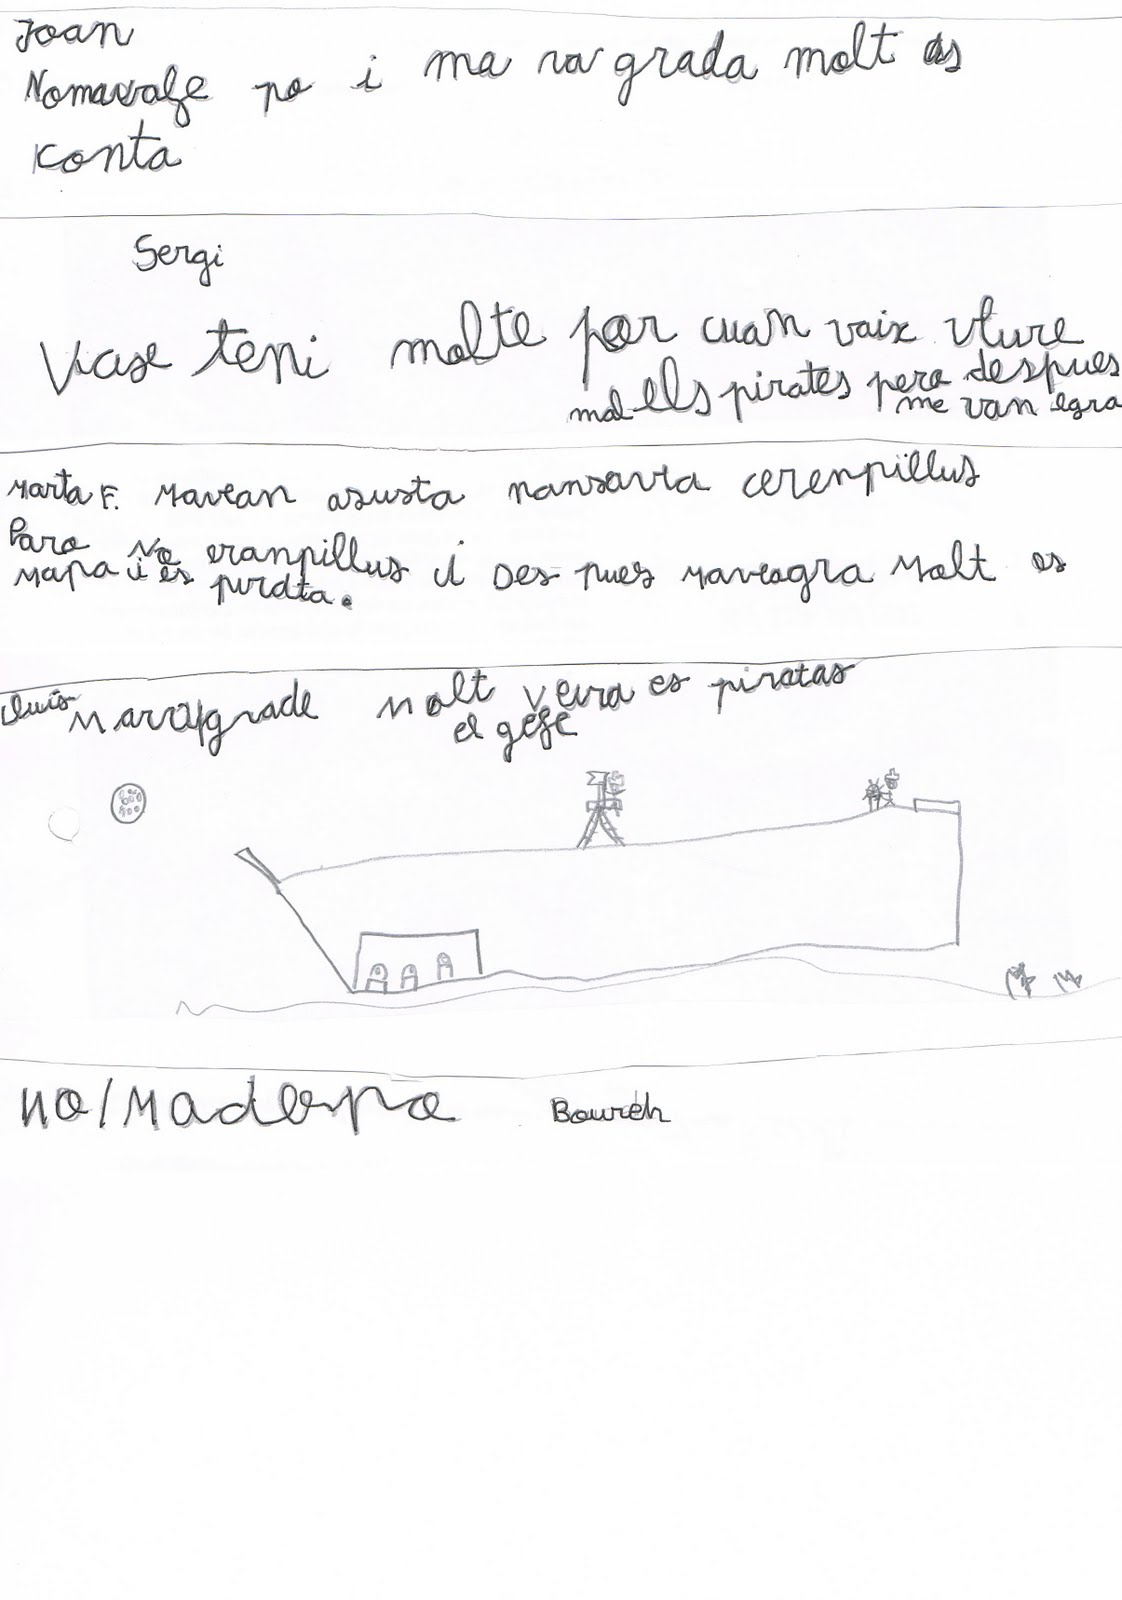 Joan
Nomavafe po i ma va grada molt as
konta
Sergi
Vase teni molte por cuan vaix vture
mal ells pirates pero despues
me van agra
Marta F. Mavean asusta nansavia cerenpillus
Paro No eranpillus i Des pues maveagra Molt es
Mapa i es pirata.
Lluís Marragrade Molt veura es piratas
el gefe
NO/Madospo Boureh